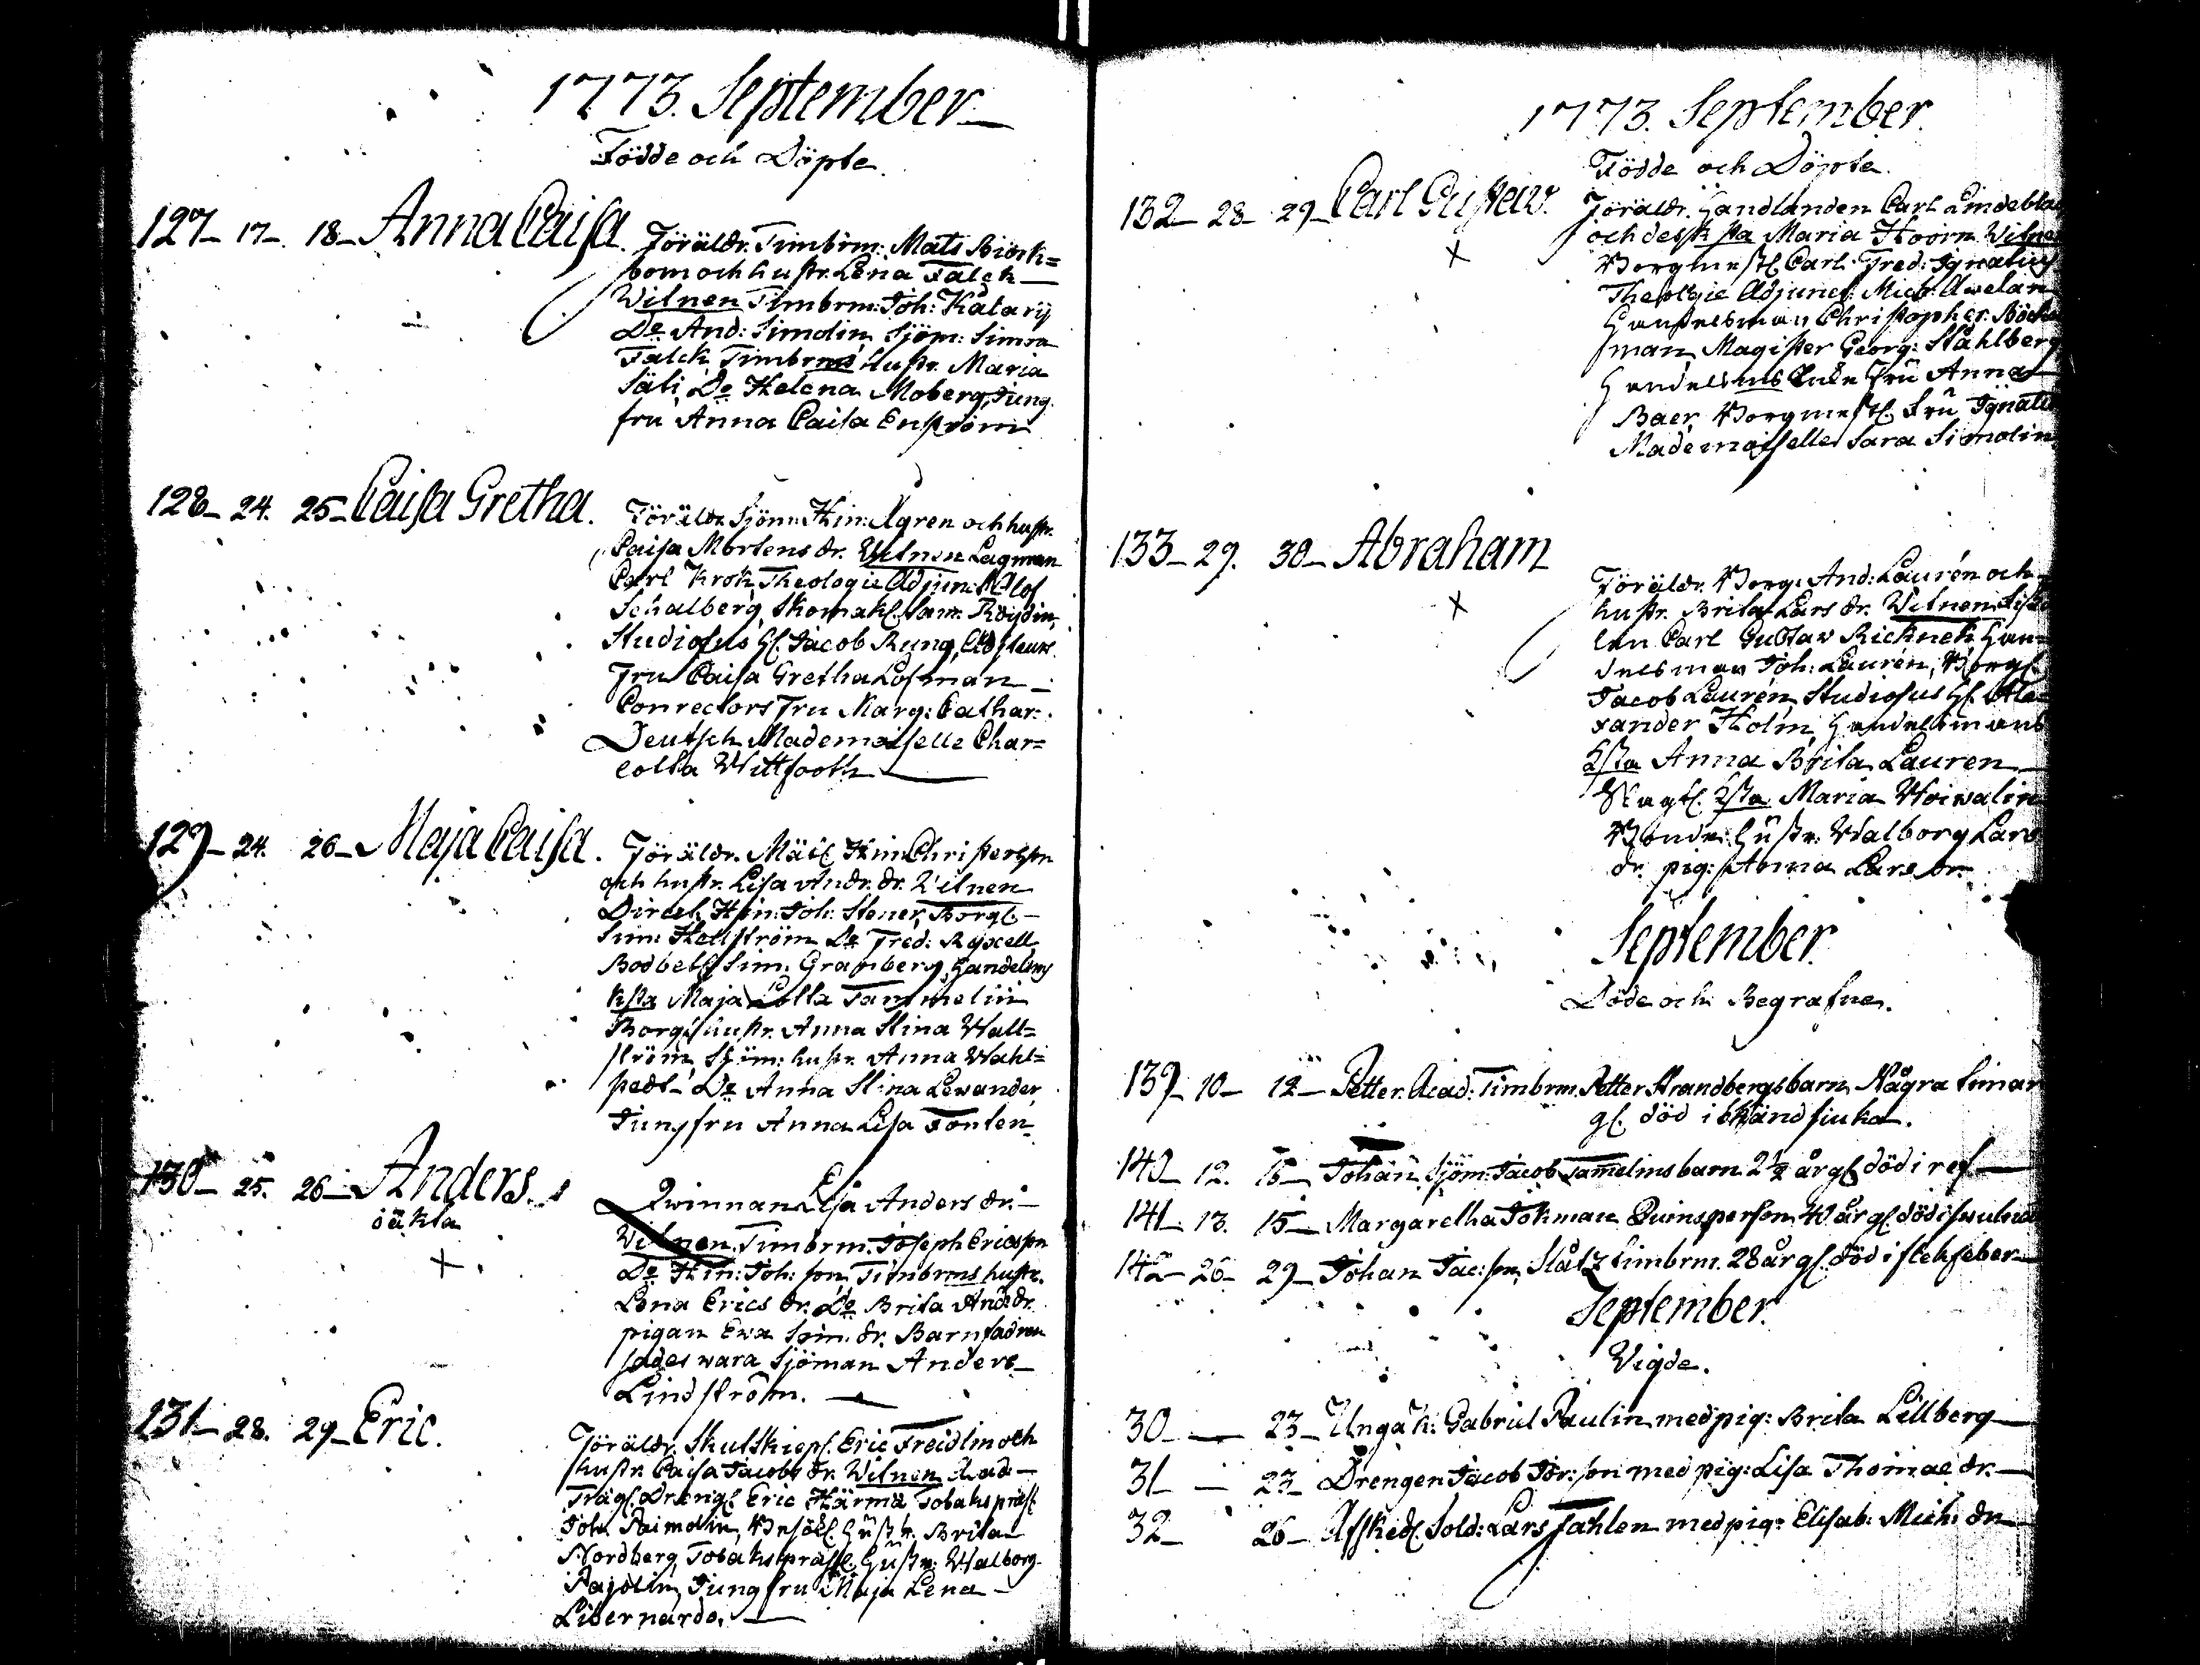 1773. September
Födde och Döpte.
127 17. 18 Anna Caisa. Föräldr. Timbrm: Mats Biörk=
bom och hustr. Lena Falck
Witnen Timbrm: Joh: Katarÿ
Do And: Simolin, Sjöm: Simon
Falck, Timbrms hustr. Maria
Säli, Do Helena Moberg, Jung
fru Anna Caisa Enström
128 24. 25 Caisa Gretha. Föräldr. Sjöm: Hin: Ågren och hustr.
Caisa Mortens dr. Witnen Lagman
Carl Krok, Theologie Adjun: Olof
Schalberg, Skomak. Sam:
Studiosus H. Jacob Rung,
Fru Caisa Gretha Lofman
Conrectors Fru Marg: Cathar:
Deutsch, Mademoiselle Char=
lotta Wittfooth
129 24. 26 Maja Caisa. Föräldr. Hin: Christerson
och hustr. Lisa Andr. dr. Witnen
Direct. Hin: Joh: Stener, Borg.
Sim: Hellström Do Fred: Ryxell
Sim: Granberg, Handelsms
hsta Maja Lotta Tammelin
Borg. hustr. Anna Stina Wall=
ström, Sjöm: hustr. Anna Wahl=
stedt Do Anna Stina Lewander,
Jungfru Anna Lisa Fonten
130 25. 26 Anders
oäkta
Qwinnan Lisa Anders dr.
Witnen. Timbrm. Joseph Ericsson
Do Hin: Joh: son, Timbrms hustr.
Lena Erics dr. Do Brita And: dr.
pigan Ewa Sim. dr. Barnfadren
sades wara sjöman Anders
Lindström.
131 28. 29 Eric.
Föräldr. Skutskiep. Eric Freidlin och
hustr. Caisa Jacobs dr. Witnen
Eric Härmä
Joh. Raimolin, hustr. Brita
Nordberg, hustr: Walborg
Jungfru Maja Lena
Libernardo.
1773. September.
Födde och Döpte.
132 28 29 Carl Gustaw. Föräldr. Handlanden Carl Lindebla
och dess hsta Maria Hoorn. Witnen
Borgmest. Carl Fred: Ignatius
Theologie Adjunct. Mich: Awelan
Handelsman Christopher Böck
man, Magister Georg: Ståhlberg
Handelsms Fru Anna
Baer, Borgmest. Fru Ignatii
Mademoiselle Sara Simolin
133 29. 30 Abraham
Föräldr. Borg: And: Laurén och
hustr. Brita Lars dr. Witnen
Carl Gustav Ricknek Han=
delsman Joh: Laurén, Borg.
Jacob Laurén, Studiosus H. Ale
xander Holm, Handelsmans
hsta Anna Brita Lauren
hsta Maria Woiwalin
Bonde: hustr: Walborg Lars
dr. pig: Anna Lars dr.
September.
Döde och Begrafne.
139 10 12 Petter. Acad: Timbrm. Petter Strandbergs barn, Några timar
gl. död i okänd siuka.
140 12. 15 Johan, Sjöm: Jacob Tamelins barn 2½ år gl. död i ref.
141 13. 15 Margaretha Tokman Quinsperson 40 år gl. död i
142 26 29 Johan Jac: son, Slåtz timbrm. 28 år gl. död i stekfeber
September.
Vigde.
30 23 Unga K: Gabriel Paulin med pig: Brita Lillberg
31 23 Drengen Jacob Jör: son med pig: Lisa Thomae dr.
32 26 Afsked. Sold: Lars Fahlen med pig: Elisab: Mich: dr.